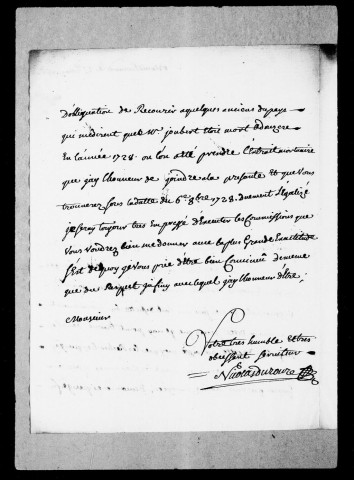 d'obligation de Recourir a quelques anciens du pays
qui me dirent que le Sr. joubert etoit mort
En l'année 1728. ou l'on eté prendre l'extrait mortuaire
que j'ay l'honneur de joindre a la presente Et que Vous
trouverez sous la datte du 6.e 8bre 1728. duement Légalizé
je seray toujours tres Empressé d'Executer les Commissions que
Vous Voudrez bien me donner avec la plus Grande Exactitude
C'est de quoy je Vous prie d'être bien Convaincu de meme
que du Respect avec lequel j'ay l'honneur d'être,
Monsieur
Votre tres humble Et tres
obeissant serviteur
Nicolas Duroure